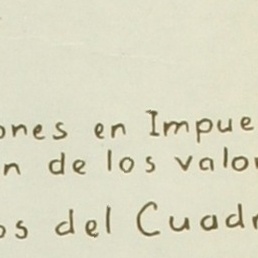 ones en Impue
n de los valor
os del Cuadr